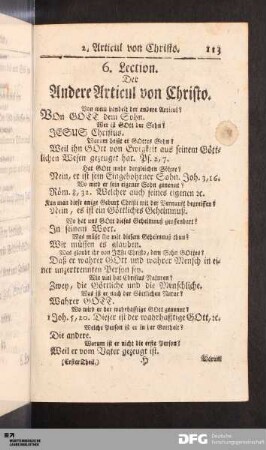 2. Articul von Christo. 113
6. Lection.
Der
Andere Articul von Christo.
Von wem handelt der andere Articul?
VOn GOTT dem Sohn.
Wer ist GOtt der Sohn?
JESUS Christus.
Warum heißt er GOttes Sohn?
Weil ihn GOtt von Ewigkeit aus seinem Gött-
lichen Wesen gezeuget hat. Ps. 2, 7.
Hat GOtt mehr dergleichen Söhne?
Nein, er ist sein Eingebohrner Sohn. Joh. 3, 16.
Wo wird er sein eigener Sohn genennt?
Röm. 8, 32. Welcher auch seines eigenen ꝛc.
Kan man diese ewige Geburt Christi mit der Vernunfft begreiffen?
Nein, es ist ein Göttliches Geheimnuß.
Wo hat uns GOtt dieses Geheimnuß geoffenbart?
In seinem Wort.
Was müßt ihr mit diesem Geheimnuß thun?
Wir müssen es glauben.
Was glaubt ihr von JEsu Christo, dem Sohn GOttes?
Daß er wahrer GOtt und wahrer Mensch in ei-
ner unzertrennten Person sey.
Wie viel hat Christus Naturen?
Zwey, die Göttliche und die Menschliche.
Was ist er nach der Göttlichen Natur?
Wahrer GOTT.
Wo wird er der wahrhafftige GOtt genennet?
1 Joh. 5, 20. Dieser ist der wahrhafftige GOtt, ꝛc.
Welche Person ist er in der Gottheit?
Die andere.
Warum ist er nicht die erste Person?
Weil er vom Vater gezeugt ist.
(Erster Theil.) H
DFG Deutsche
Forschungsgemeinschaft